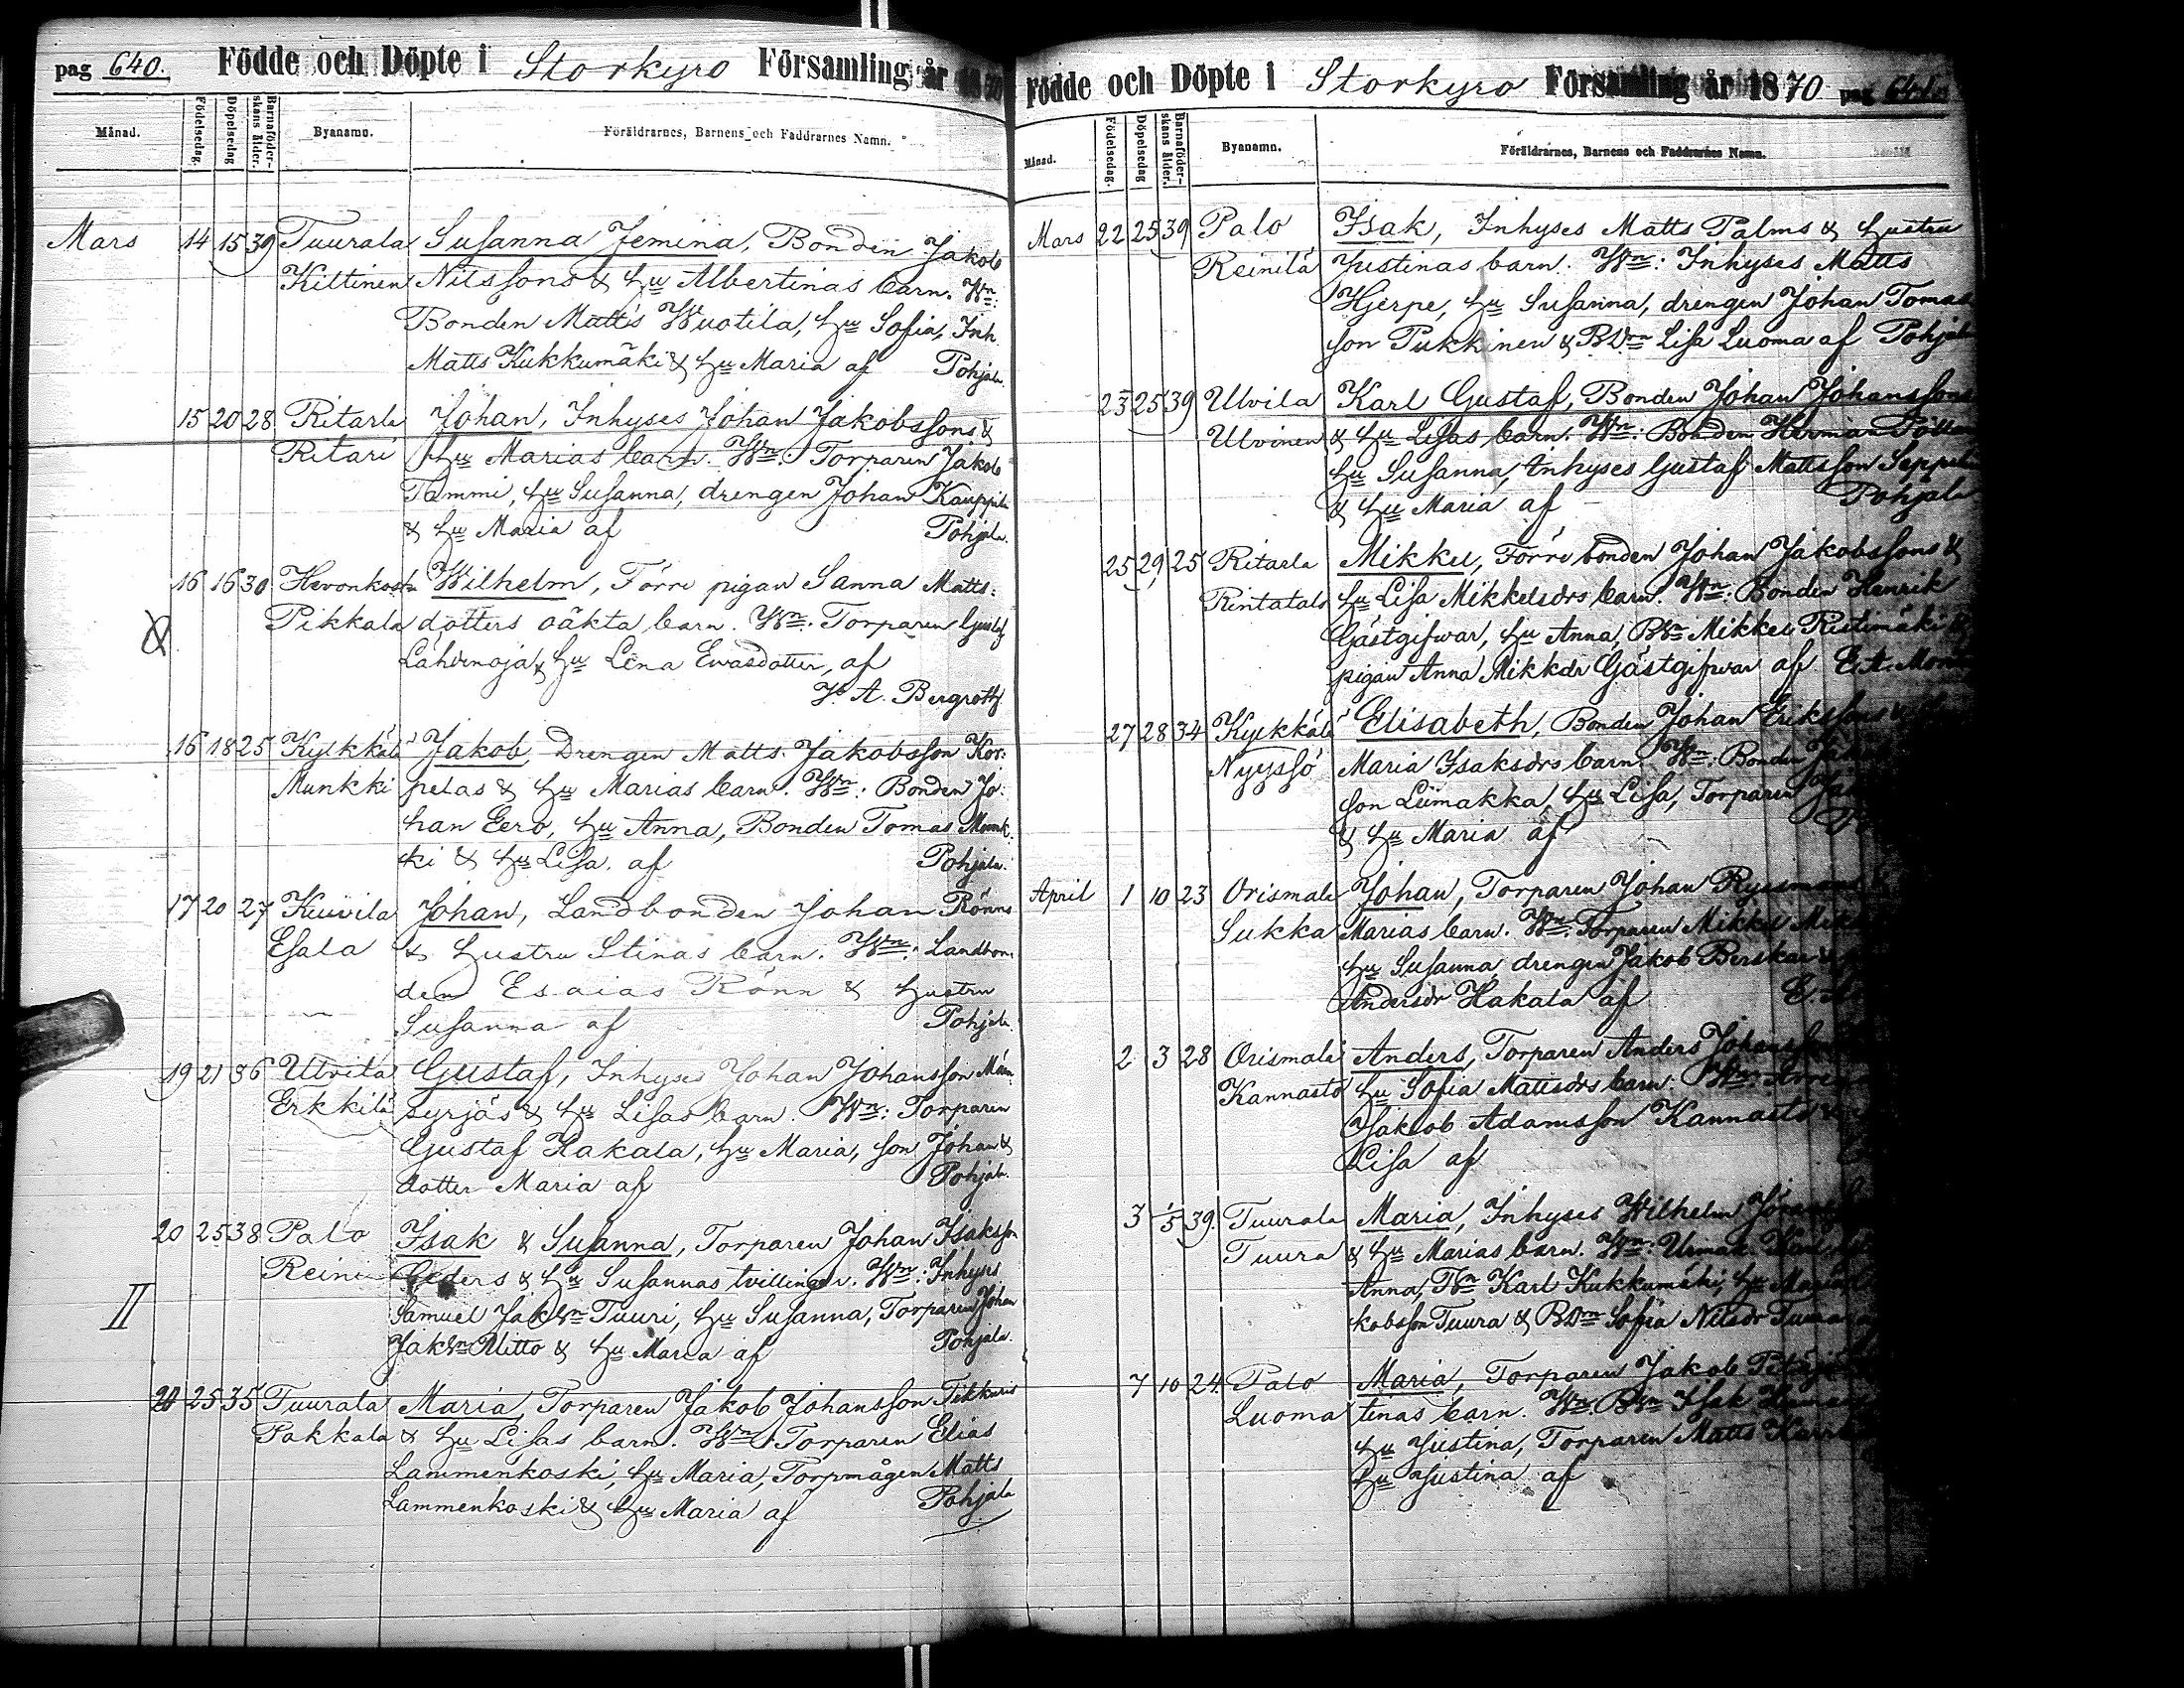 pag 640. Födde och Döpte i Storkyro Församling år 1870
Månad. Födelsedag. Döpelsedag Barnaföderskans ålder. Byanamn. Föräldrarnes, Barnens och Faddrarnes Namn.
Mars 14 15 39 Tuurala Susanna Jemina, Bonden Jakob
Kiltinen Nilssons & hu Albertinas barn. Wn:
Bonden Matts Wuotila, hu Sofia, Inh.
Matts Kukkumäki & hu Maria af Pohjala.
15 20 28 Ritarla Johan, Inhyses Johan Jakobssons &
Ritari hu Marias barn. Wn: Torparen Jakob
Tammi, hu Susanna, drengen Johan Kauppila
& hu Maria af Pohjala.
16 16 30 Hevonkoski Wilhelm, Förre pigan Sanna Matts:
Pikkala dotters oäkta barn. Wn. Torparen Gustaf
Lahdenoja & hu Lena Ewasdotter, af
A. Bergroth
16 18 25 Kylkkälä Jakob, Drengen Matts Jakobsson Kor:
Munkki pelas & hu Marias barn. Wn: Bonden Jo:
han Eero, hu Anna, Bonden Tomas Munk:
ki & hu Lisa. af Pohjala.
17 20 27 Kuivila Johan, Landbonden Johan Rönns
Esala & hustru Stinas barn. Wn: Landbon:
den Esaias Rönn & hustru
Susanna af Pohjala.
19 21 36 Ulvila Gustaf, Inhyses Johan Johansson Män:
Erkkilä syrjäs & hu Lisas barn. Wn: Torparen
Gustaf Hakala, hu Maria, son Johan &
dotter Maria af Pohjala.
20 25 38 Palo Isak & Susanna, Torparen Johan Isaksson
Reini Ceders & hu Susannas tvillingar. Wn: Inhyses
II Samuel Jaksn Tuuri, hu Susanna, Torparen Johan
Jaksn Ulitto & hu Maria af Pohjala.
20 25 35 Tuurala Maria, Torparen Jakob Johansson Tikkuris
Pakkala & hu Lisas barn. Wn: Torparen Elias
Lammenkoski, hu Maria, Torpmågen Matts
Lammenkoski & hu Maria af Pohjala
Födde och Döpte i Storkyro Församling år 1870 pag 641.
Månad. Födelsedag. Döpelsedag Barnaföderskans ålder. Byanamn. Föräldrarnes, Barnens och Faddrarnes Namn.
Mars 22 25 39 Palo Isak, Inhyses Matts Palms & hustru
Reinilä Justinas barn. Wn: Inhyses Matts
Hjerpe, hu Susanna, drengen Johan Tomas
son Pukkinen & BDrn Lisa Luoma af Pohjala
23 25 39 Ulvila Karl Gustaf, Bonden Johan Johanssons
Ulvinen & hu Lisas barn. Wn: Bonden Herman
hu Susanna, Inhyses Gustaf Mattsson Seppelin
& hu Maria af Pohjala
25 29 25 Ritarla Mikkel, Förre bonden Johan Jakobssons &
Rintatalo hu Lisa Mikkelsdrs barn. Wn: Bonden Henrik
Gästgifwar, hu Anna, BSn Mikkel Ristimäki
pigan Anna Mikkdr Gästgifwar af E. A.
27 28 34 Kylkkälä Elisabeth, Bonden Johan Erikssons &
Nyyssö Maria Isaksdrs barn. Wn: Bonden
son Liimakka, hu Lisa, Torparen
& hu Maria af
April 1 10 23 Orismala Johan, Torparen Johan
Sukka Marias barn. Wn: Torparen Mikkel
hu Susanna, drengen Jakob Berskar &
Andersdr Hakala af E. A
2 3 28 Orismala Anders, Torparen Anders Johansson
Kannasto hu Sofia Mattsdrs barn. Wn:
Jakob Adamsson Kannasto &
Lisa af
3 1/5 39. Tuurala Maria, Inhyses Wilhelm
Tuura & hu Marias barn. Wn:
Anna, Karl Kukkumäki, hu Maria
kobsson Tuura & BDrn Sofia Nilsdr Tuura
7 10 24. Palo Maria, Torparen Jakob
Luoma tinas barn. Wn. BSn Isak
hu Justina, Torparen Matts
hu Justina af